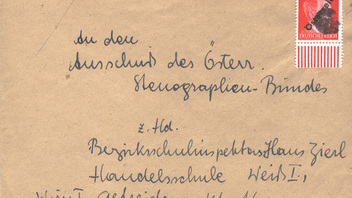 An den
Ausschuß des Österr.
Stenographen-Bundes
z. Hd.
Bezirksschulinspektor Hans Zierl
Handelsschule Weiß I.,
Wien I
DEUTSCHES REICH